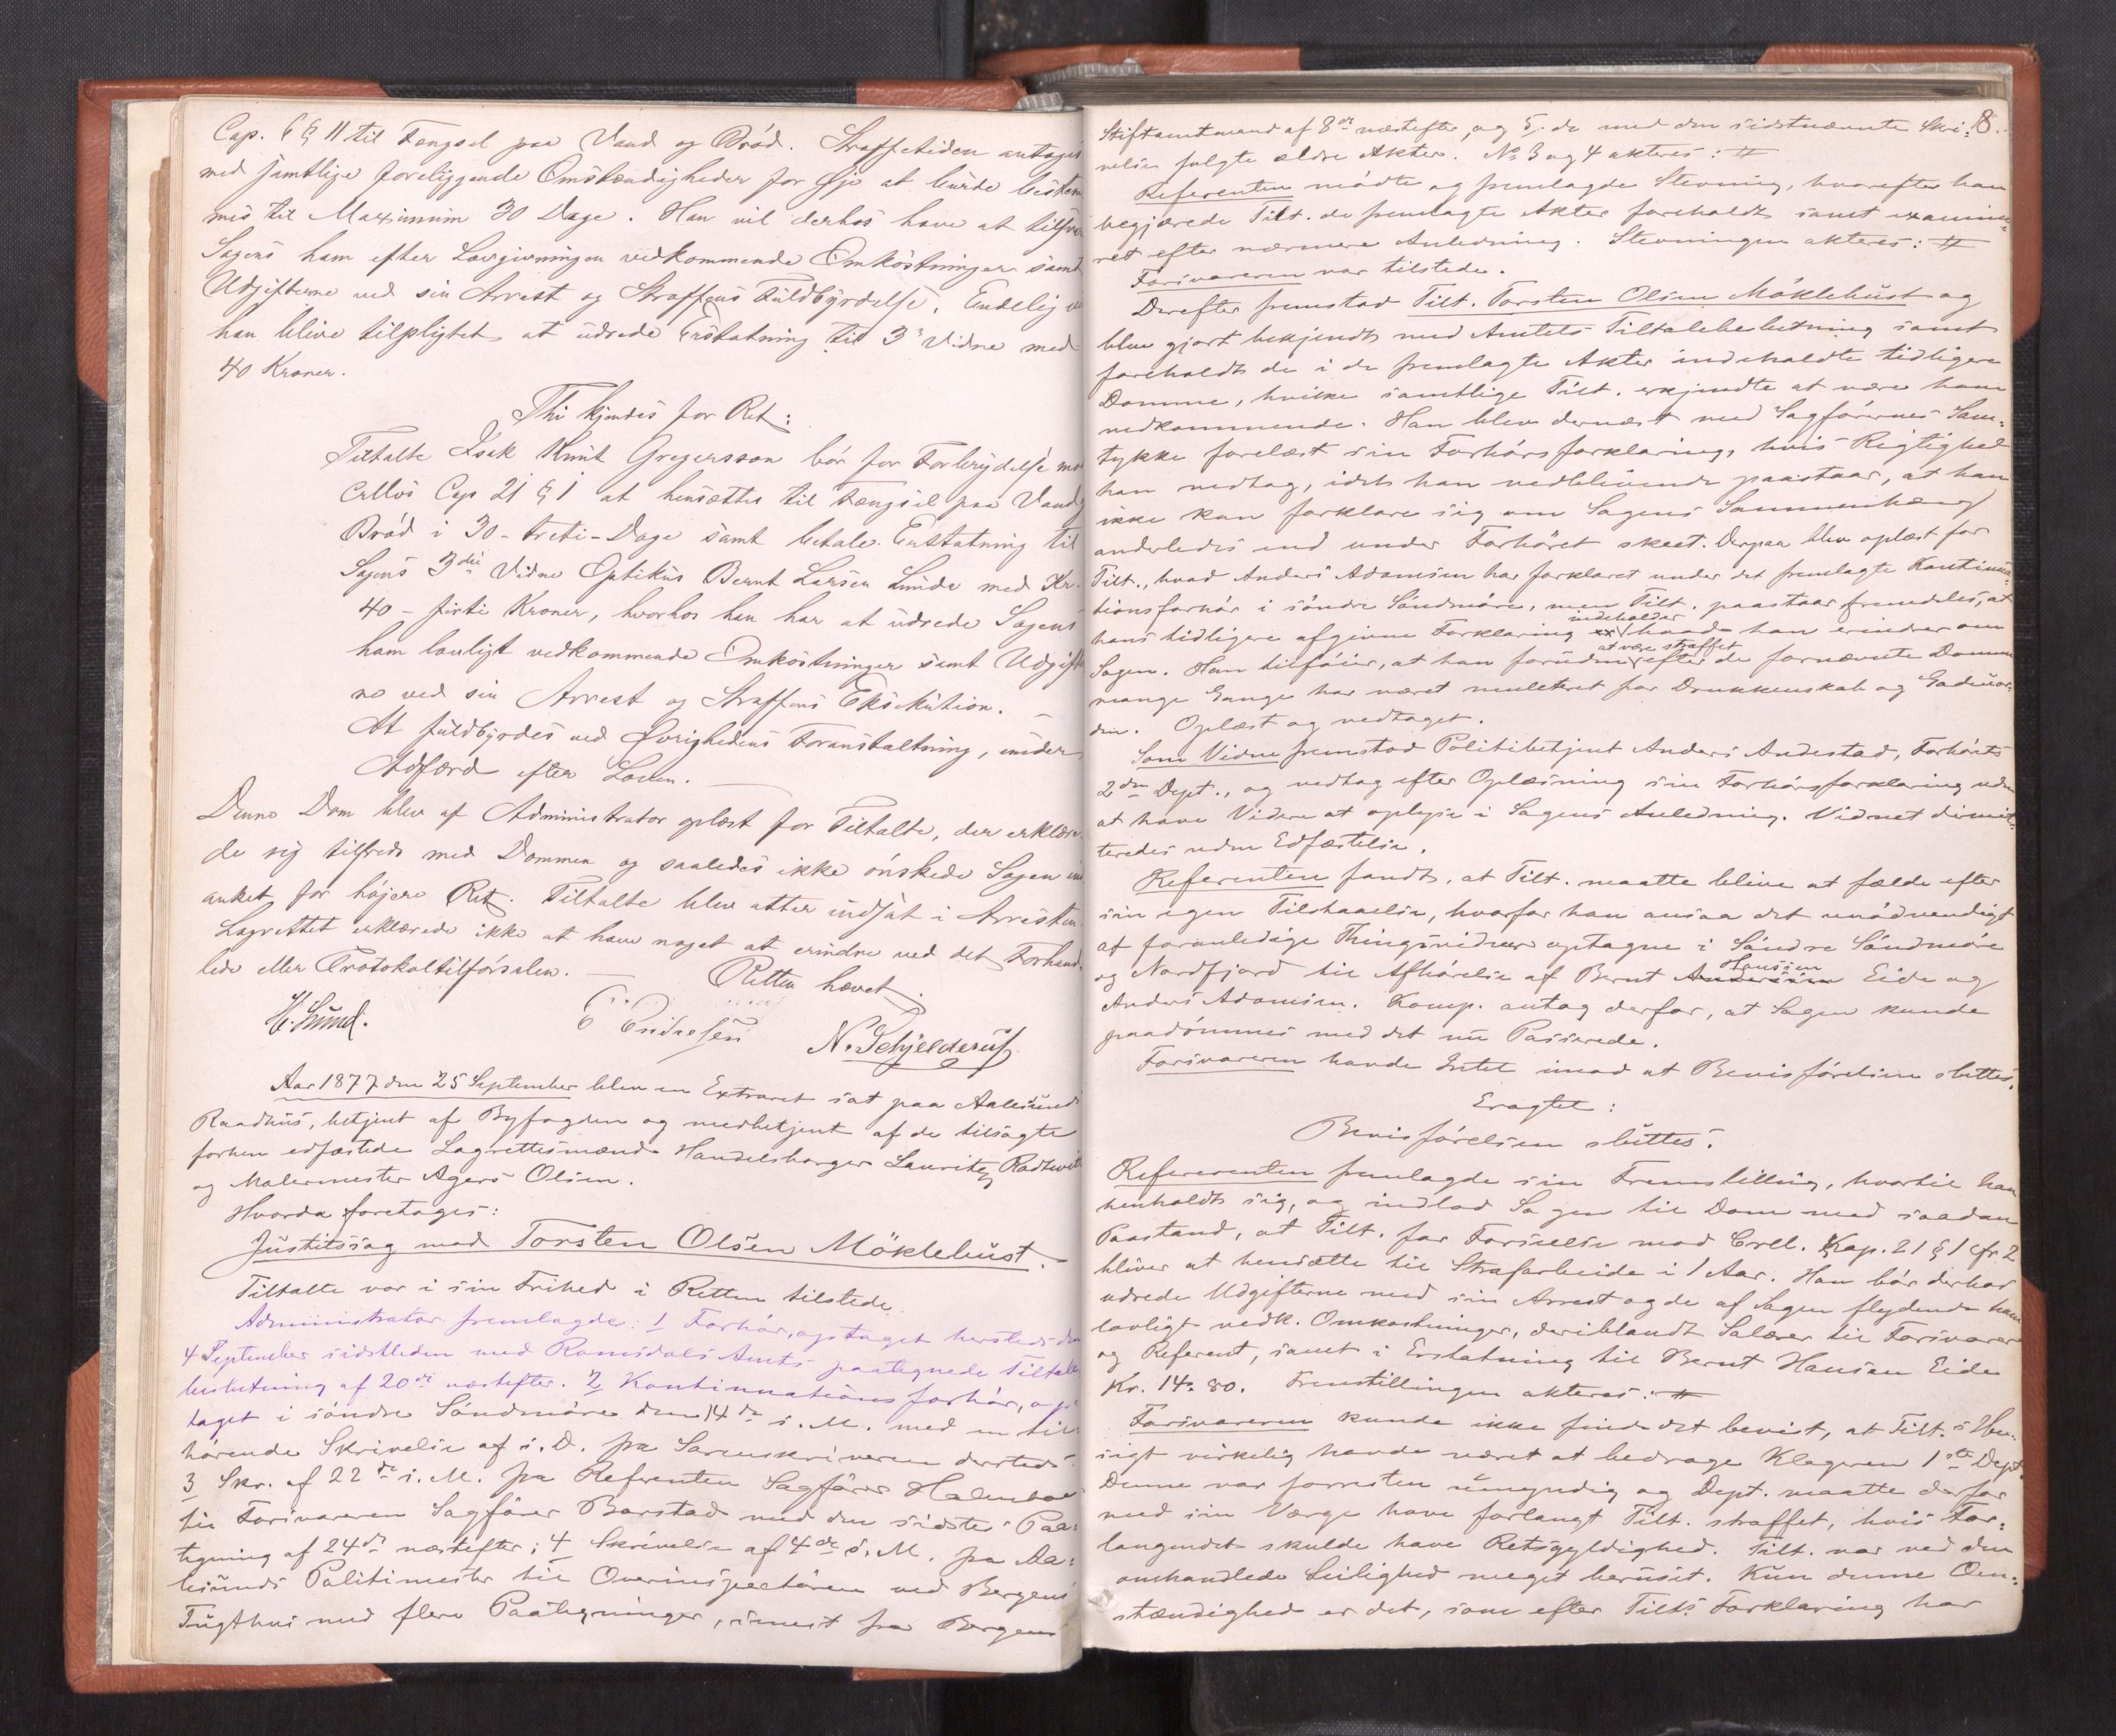 Cap. 6 § 11 til Fængsel paa Vand og Brød. Straffetiden antages
med samtlige foreliggende Omstændigheder for Øje at burde bestem
mes til Maximum 30 Dage. Han vil derhos have at tilsva
Sagens ham efter Lovgivningen vedkommende Omkostninger samt
Udgifterne ved sin Arrest og Straffens Fuldbyrdelse. Endelig v
han blive tilpligtet at udrede Erstatning til 3die Vidne med
40 Kroner.
Thi kjendes for Ret:
Tiltalte Isak Knut Gregersson bør for Forbrydelse mo
Crllvs Cap 21 § 1 at hensættes til Fængsel paa Vand
Brød i 30 - treti - Dage samt betale Erstatning til
Sagens 3die Vidne Optikus Bernt Larsen Lunde med Kr.
40 - firti Kroner, hvorhos han har at udrede Sagens
ham lovligt vedkommende Omkostninger samt Udgifte
ne ved sin Arrest og Straffens Eksekution. —
At fuldbyrdes ved Øvrighedens Foranstaltning, under
Adfærd efter Loven. —
Denne Dom blev af Administrator oplæst for Tiltalte, der erklære-
de sig tilfreds med Dommen og saaledes ikke ønskede Sagen ind
anket for højere Ret. Tiltalte blev atter indsat i Arresten.
Lagrettet erklærede ikke at have noget at erindre ved det Forhand-
lede eller Protokoltilførselen. —
Retten hævet.
H. Lund. E Endresen N. Schjelderup
Aar 1877 den 25 September blev en Extraret sat paa Aalesunds
Raadhus, betjent af Byfogden og medbetjent af de tilsagte
forhen edfæstede Lagrettesmænd Handelsborger Lauritz
og Malermester Agers Olsen.
Hvorda foretoges:
Justitssag mod Torsten Olsen Möklebust.
Tiltalte var i sin Frihed i Retten tilstede.
Administrator fremlagde: 1 Forhør, optaget hersteds den
4 September sidstleden med Romsdals Amts paategnede Tiltale
beslutning af 20de næstefter. 2 Kontinuationsforhør, op-
taget i søndre Søndmøre den 14de s. M. med en til-
hørende Skrivelse af s. D. fra Sorenskriveren dersteds.
3 Skr. af 22de s. M. fra Referenten Sagfører Holmboe
til Forsvareren Sagfører Barstad med den sidstes Paa-
tegning af 24de næstefter; 4 Skrivelse af 4de s. M. fra Aa-
lesunds Politimester til Overinspectøren ved Bergens
Tugthus med flere Paategninger, senest fra Bergens
8.
Stiftamtmand af 8de næstefter, og 5. de med den sidstnævnte Skri-
velse fulgte ældre Akter. No 3 og 4 akteres: #
Referenten mødte og fremlagde Stevning, hvorefter han
begjærede Tilt. de fremlagte Akter foreholdt samt examine-
ret efter nærmere Anledning. Stevningen akteres: #
Forsvareren var tilstede.
Derefter fremstod Tilt. Torsten Olsen Möklebust og
blev gjort bekjendt med Amtets Tiltalebeslutning samt
foreholdt de i de fremlagte Akter indeholdte tidligere
Domme, hvilke samtlige Tilt. erkjendte at være ham
vedkommende. Han blev dernæst med Sagførernes Sam-
tykke forelæst sin Forhørsforklaring, hvis Rigtighed
han vedtog, idet han vedblivende paastaar, at han
ikke kan forklare sig om Sagens Sammenhæng
anderledes end under Forhøret skeet. Derpaa blev oplæst for
Tilt., hvad Anders Adamsen har forklaret under det fremlagte Kontinua-
tionsforhør i søndre Søndmøre, men Tilt. paastaar fremdeles, at
indeholder
hans tidligere afgivne Forklaring hvad han erindrer om
at være straffet
Sagen. Han tilføier, at han foruden efter de fornævnte Domme
mange Gange har været mulkteret for Drukkenskab og Gadeuor-
den. Oplæst og vedtaget.
Som Vidne fremstod Politibetjent Anders Andestad, Forhørets
2den Dept., og vedtog efter Oplæsning sin Forhørsforklaring uden
at have Videre at oplyse i Sagens Anledning. Vidnet dimit-
teredes uden Edfæstelse.
Referenten fandt, at Tilt. maatte blive at fælde efter
sin egen Tilstaaelse, hvorfor han ansaa det unødvendigt
at foranledige Thingsvidner optagne i Søndre Søndmøre
Hansen
og Nordfjord til Afhørelse af Bernt Andersen Eide og
Anders Adamsen. Komp. antog derfor, at Sagen kunde
paadømmes med det nu Passerede.
Forsvareren havde Intet imod at Bevisførelsen sluttes.
Eragtet:
Bevisførelsen sluttes.
Referenten fremlagde sin Fremstilling, hvortil han
henholdt sig, og indlod Sagen til Dom med saadan
Paastand, at Tilt. for Forseelse mod Crll. Kap. 21 § 1 cfr 2
bliver at hensætte til Strafarbeide i 1 Aar. Han bør derhos
udrede Udgifterne med sin Arrest og de af Sagen flydende ham
lovligt vedk. Omkostninger, deriblandt Salærer til Forsvarer
og Referent, samt i Erstatning til Bernt Hansen Eide
Kr. 14. 80. Fremstillingen akteres: #
Forsvareren kunde ikke finde det bevist, at Tilt.s Hen-
sigt virkelig havde været at bedrage Klageren 1ste Dept.
Denne var forresten umyndig og Dept. maatte derfor
med sin Værge have forlangt Tilt. straffet, hvis For-
langendet skulde have Retsgyldighed. Tilt. var ved den
omhandlede Leilighed meget beruset. Kun denne Om-
stændighed er det, som efter Tilts Forklaring har